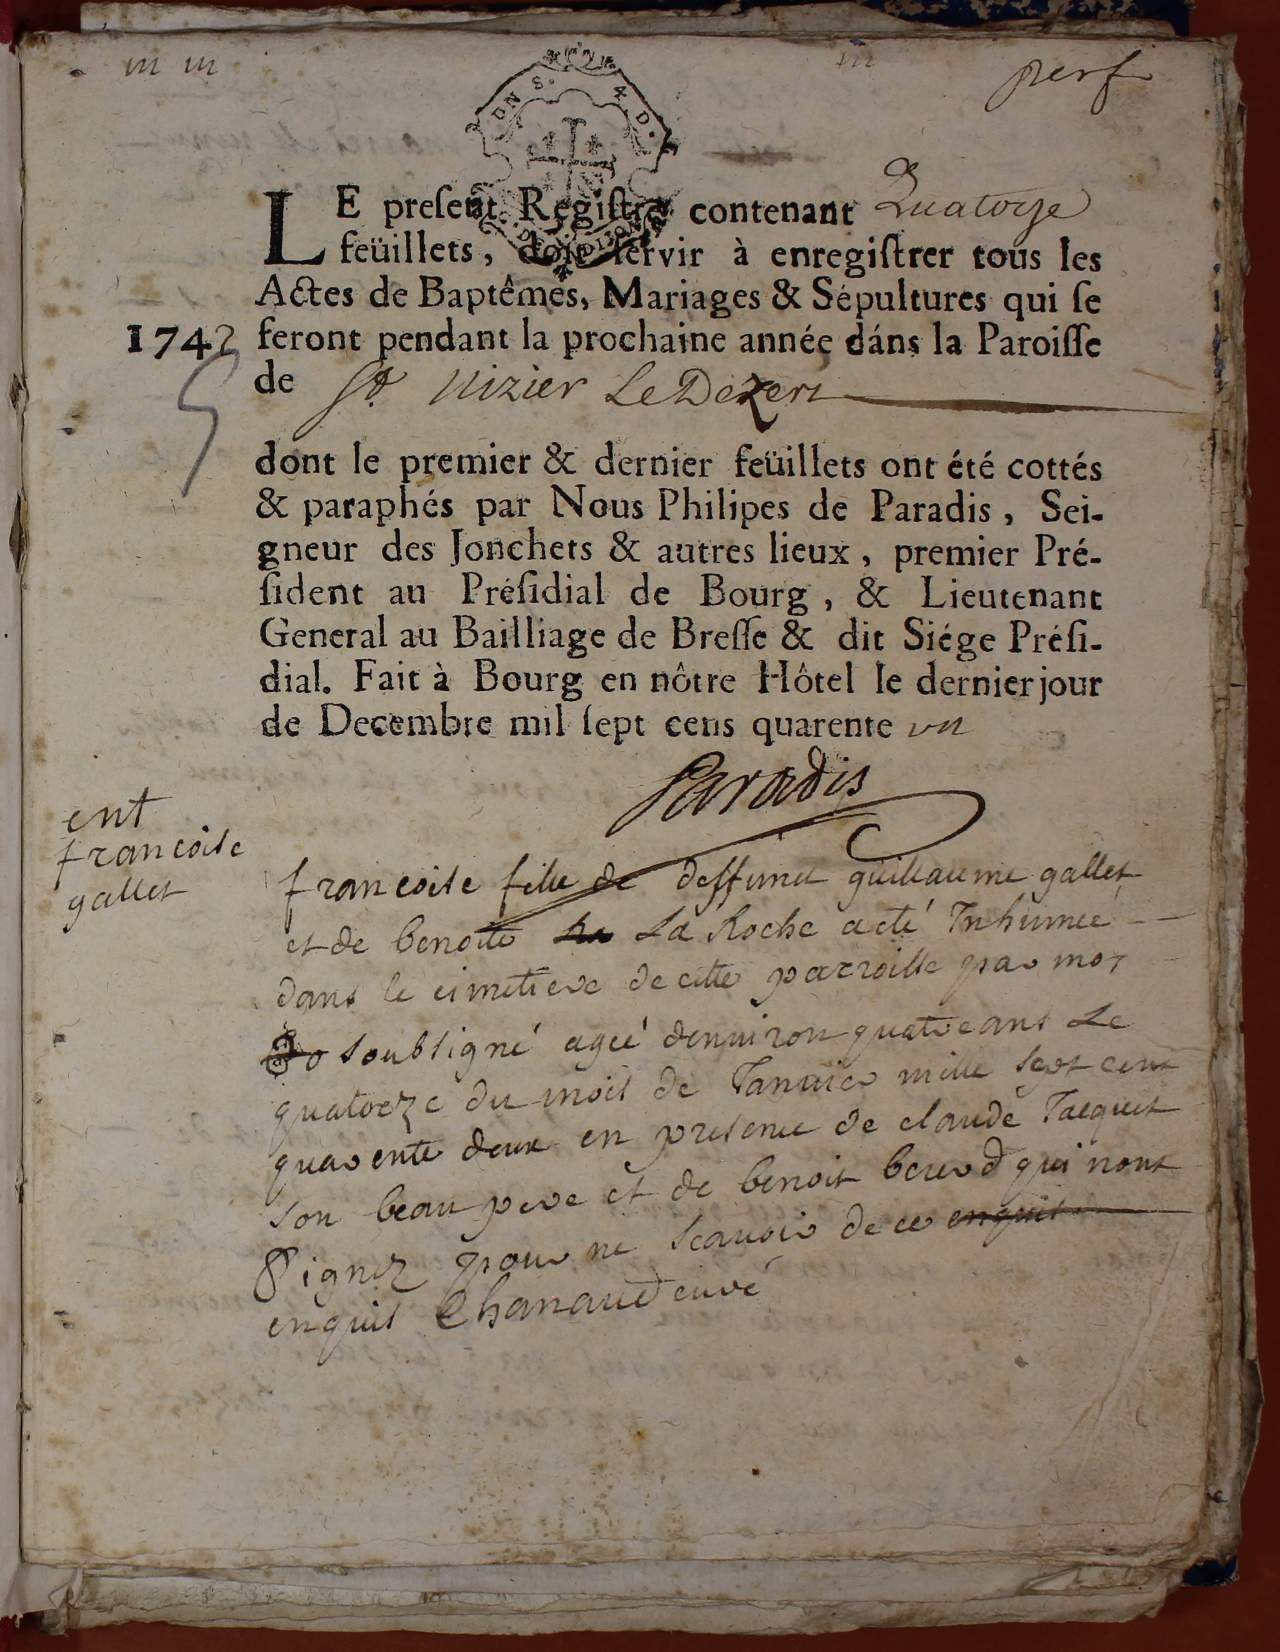 perf
LE present Registre contenant Quatorze
feüillets, doit servir à enregistrer tous les
Actes de Baptêmes, Mariages & Sépultures qui se
1742 feront pendant la prochaine année dáns la Paroisse
de St. Nizier Le Dezert
dont le premier & dernier feüillets ont été cottés
& paraphés par Nous Philipes de Paradis, Sei-
gneur des Jonchets & autres lieux, premier Pré-
sident au Présidial de Bourg, & Lieutenant
General au Bailliage de Bresse & dit Siége Prési-
dial. Fait à Bourg en nôtre Hôtel le dernier jour
de Decembre mil sept cens quarente un
Paradis
ent
francoise
gallet
francoise fille de deffunct guillaume gallet
et de benoite La Roche a eté Inhumeé
dans le cimetiere de cette parroisse par moy
soubsigné ageé denuiron quatre ans Le
quatorze du mois de Januier mille sept cent
quarente deux en presence de claude Jacquet
son beau pere et de benoit berrod qui nont
signez pour ne scauoir de ce enquis
enquis Chanaud curé